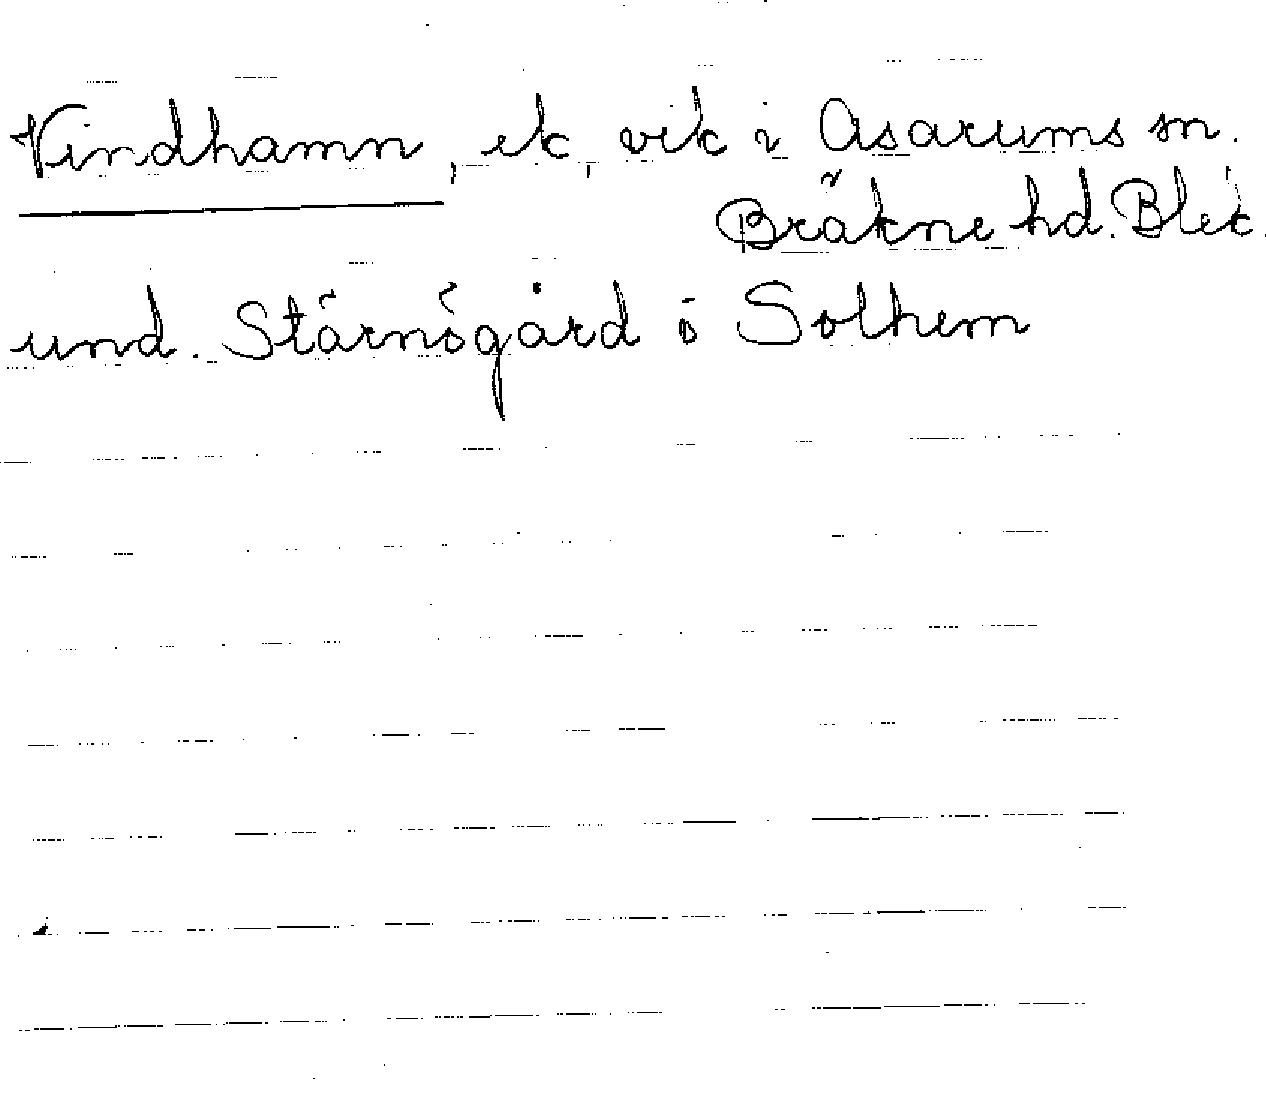 Vindhamn, ek, vik i Asarums sn.
Bräkne hd. Blek.
und. Stärnögård ö Solhem